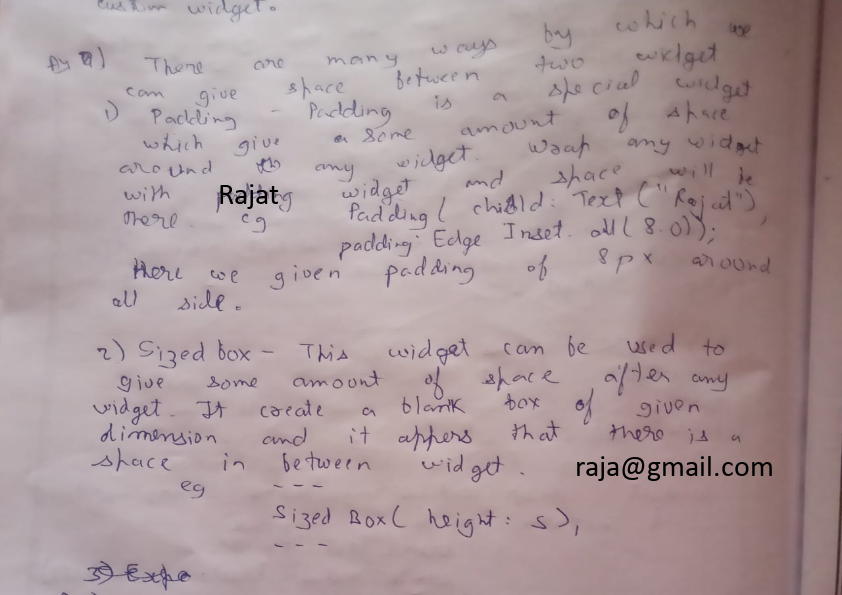 custom widget.
There are many ways by which we
can give space between two widget
1) Padding - Padding is a special widget
which give a some amount of space
around any widget. Wrap any widget
with Rajat widget and space will be
there. eg Padding( child: Text ("Rajat"),
padding: Edge Inset. all( 8.0));
Here we given padding of 8px around
all side.
2) Sized box - This widget can be used to
give some amount of space after any
widget. It create a blank box of given
dimension and it appers that there is a
space in between widget. raja@gmail.com
eg - - -
Sized Box( height: 5),
- - -